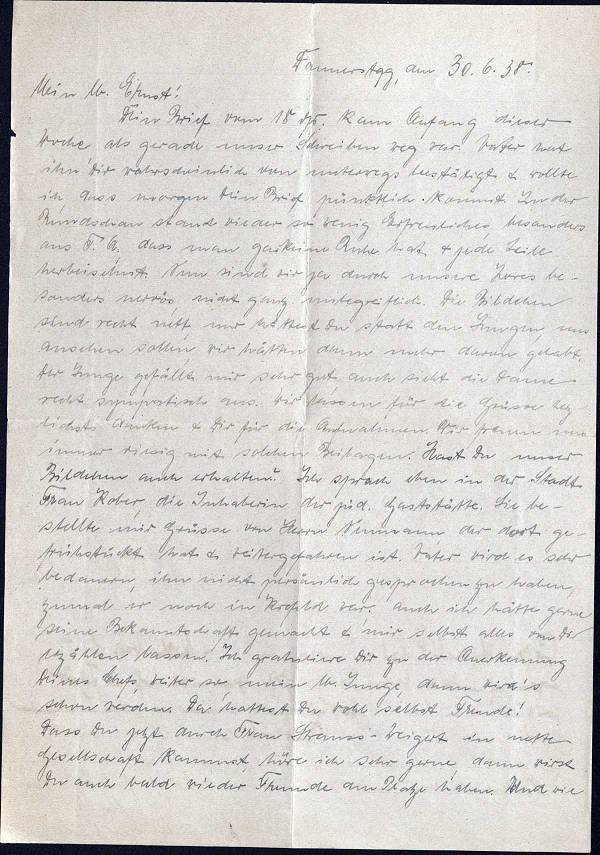 Donnerstag, den 30.6.38.
Mein lb. Ernst!
Dein Brief vom 18 ds. kam Anfang dieser
Woche als gerade unser Schreiben weg war. Vater hat
ihn Dir wahrscheinlich von unterwegs bestätigt & wollte
ich, dass morgen Dein Brief pünktlich kommt. In der
Rundschau stand wieder so wenig Erfreuliches, besonders
aus S. A. dass man gar keine Ruhe hat & jede Zeile
herbeisehnt. Nun sind wir ja durch unsere Zores be-
sonders nervös, nicht ganz unbegreiflich. Die Bildchen
sind recht nett, nur hättest Du statt den Jungen, uns
ansehen sollen, wir hätten dann mehr davon gehabt.
Der Junge gefällt mir sehr gut, auch sieht die Dame
recht sympatisch aus. Wir lassen für die Grüsse herz-
lichst danken & Dir für die Aufnahmen. Wir freuen uns
immer riesig mit solchen Beilagen. Hast Du unser
Bildchen auch erhalten? Ich sprach eben in der Stadt
Frau Kober die Inhaberin der jüd. Gaststätte. Sie be-
stellte mir Grüsse von Herrn Neumann der dort ge-
frühstückt hat & weitergefahren ist. Vater wird es sehr
bedauern, ihn nicht persönlich gesprochen zu haben,
zumal er noch in Krefeld war. Auch ich hätte gerne
seine Bekanntschaft gemacht & mir selbst alles von Dir
erzählen lassen. Ich gratuliere Dir zu der Anerkennung
Deines Chefs, weiter so mein lb. Junge, dann wird's
schon werden. Da hattest Du wohl selbst Freude!
Dass Du jetzt durch Frau Strauss-Weigert in nette
Gesellschaft kommst, höre ich sehr gerne, dann wirst
Du auch bald wieder Freunde am Platze haben. Und wie